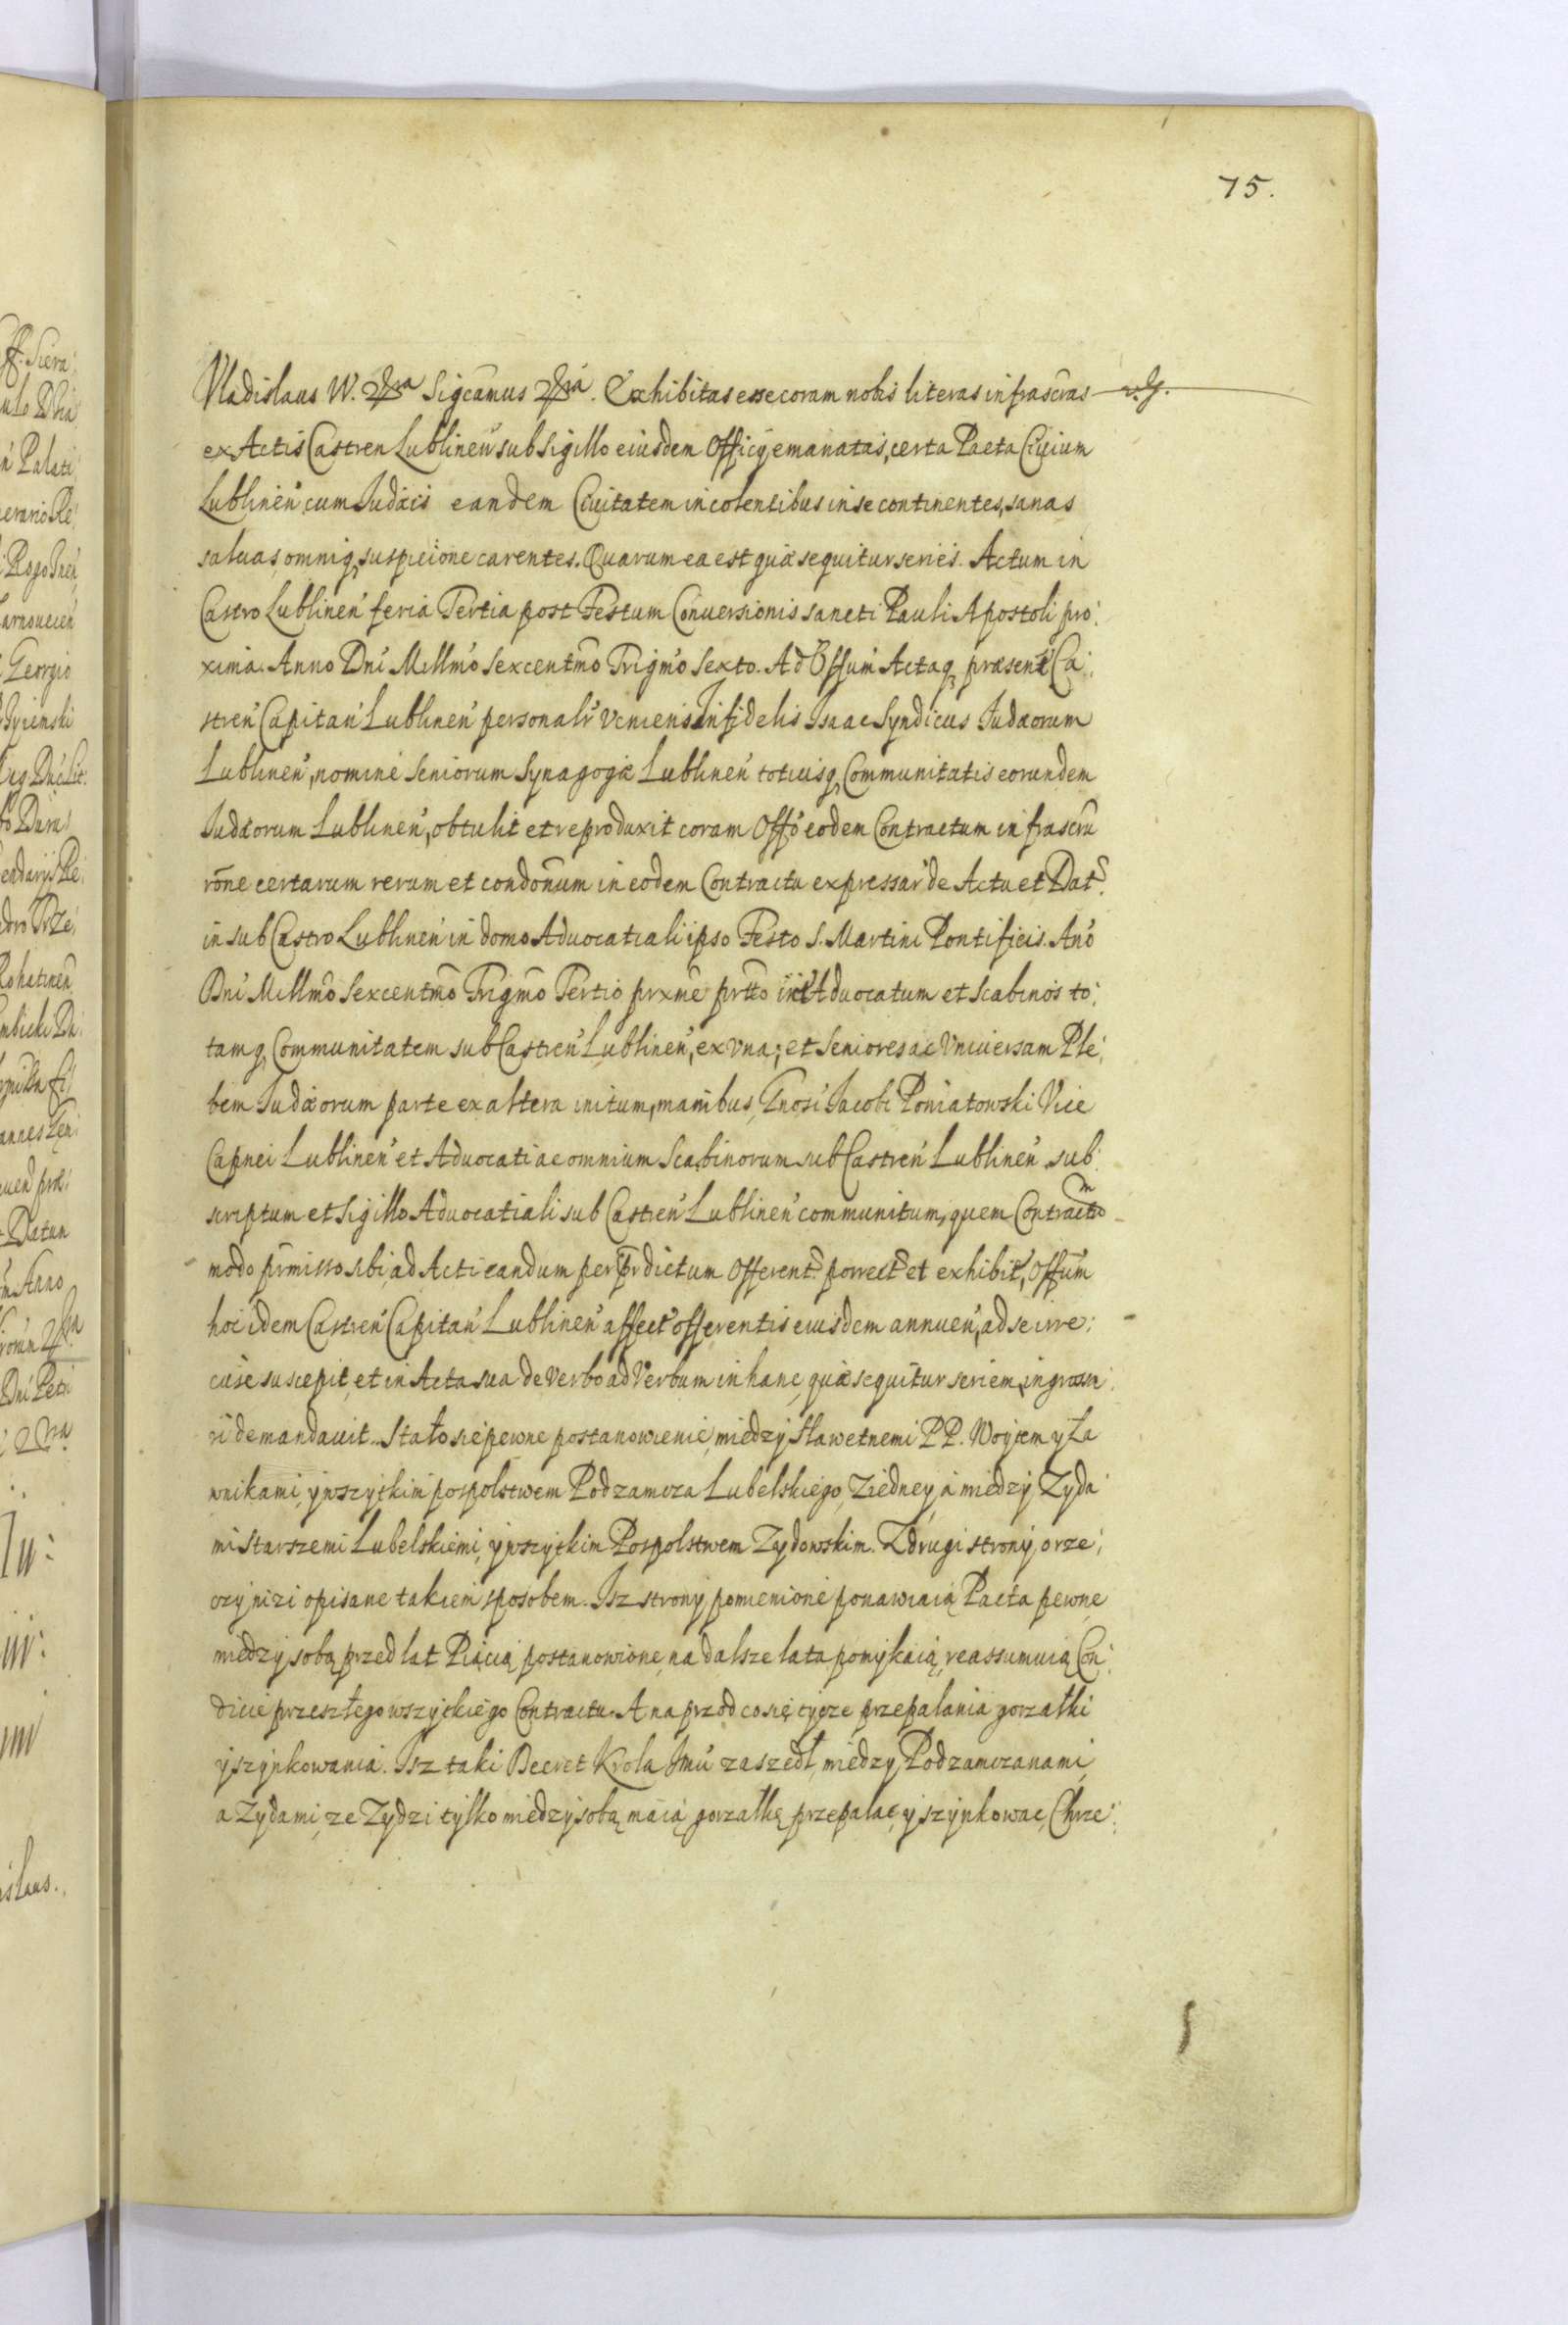 75.
Vladislaus W. Sigcamus Exhibitas esse coram nobis literas infrascras
ex Actis Castren Lublinen sub Sigillo eiusdem Officij emanatas, certa Pacta Ciuium
Lublinen cum Iudæis eandem Ciuitatem incolentibus in se continentes, sanas
saluas omniq suspicione carentes. Quarum ea est quæ sequitur series. Actum in
Castro Lublinen feria Tertia post Festum Conuersionis sancti Pauli Apostoli pro:
xima. Anno Dni Millmo Sexcentmo Trigmo Sexto. Ad Offum Actaq præsen Ca:
stren Capitan Lublinen personalr veniens Infidelis Isaac Syndicus Iudæorum
Lublinen, nomine Seniorum Synagogæ Lublinen totiusq Communitatis eorundem
Iudæorum Lublinen, obtulit et reproduxit coram Offo eodem Contractum infrascru
rone certarum rerum et condonum in eodem Contractu expressar de Actu et Dat
in sub Castro Lublinen in domo Aduocatiali ipso Festo S. Martini Pontificis. Ano
Dni Millmo Sexcentmo Trigmo Tertio prxme prtto int Aduocatum et Scabinos to:
tamq Communitatem sub Castren Lublinen, ex vna; et Seniores ac Vniuersam Ple:
bem Iudæorum parte ex altera initum, manibus Gnosi Iacobi Poniatowski Vice
Capnei Lublinen et Aduocati ac omnium Scabinorum sub Castren Lublinen sub:
scriptum et Sigillo Aduocatiali sub Castren Lublinen communitum, quem Contractm
modo prmisso sibi ad Acticandum per prdictum Offerent porrect et exhibit, Offum
hoc idem Castren Capitan Lublinen affect offerentis eiusdem annuen, ad se
suscepit, et in Acta sua de Verbo ad Verbum in hanc, quæ sequitur seriem, ingrossa:
ri demandauit. Stało sie pewne postanowienie, miedzy Sławetnemi PP. Woytem y Ła
wnikami, y wszytkim pospolstwem Podzamcza Lubelskiego, z iedney, a miedzy Zyda
mi Starszemi Lubelskiemi, y wszytkim Pospolstwem Zydowskim. Z drugi strony, o rze:
czy nizi opisane takiem sposobem. Isz strony pomienione ponawiaią Pacta pewne
miedzy sobą przed lat Piącią postanowione, na dalsze lata pomykaią, reassumuią Con:
dicie przeszłego wszytkiego Contractu. A naprzod co się tycze przepalania gorzałki
y szynkowania. Isz taki Decret Krola Jmu zaszedł, miedzy Podzamczanami,
a Zydami, ze Zydzi tylko miedzy sobą maią gorzałkę przepalac, y szynkowac, Chrze: